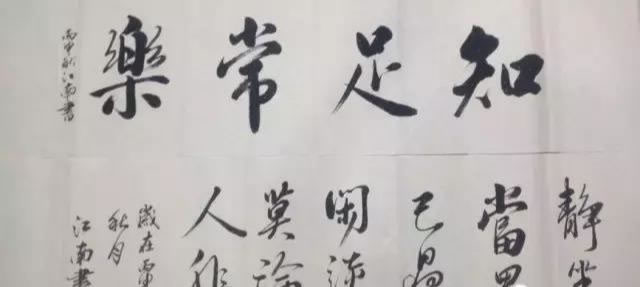 知足常樂
丙申秋江南書
静坐
當思
己過
閑談
莫論
人非
歲在丙
秋月
江南書